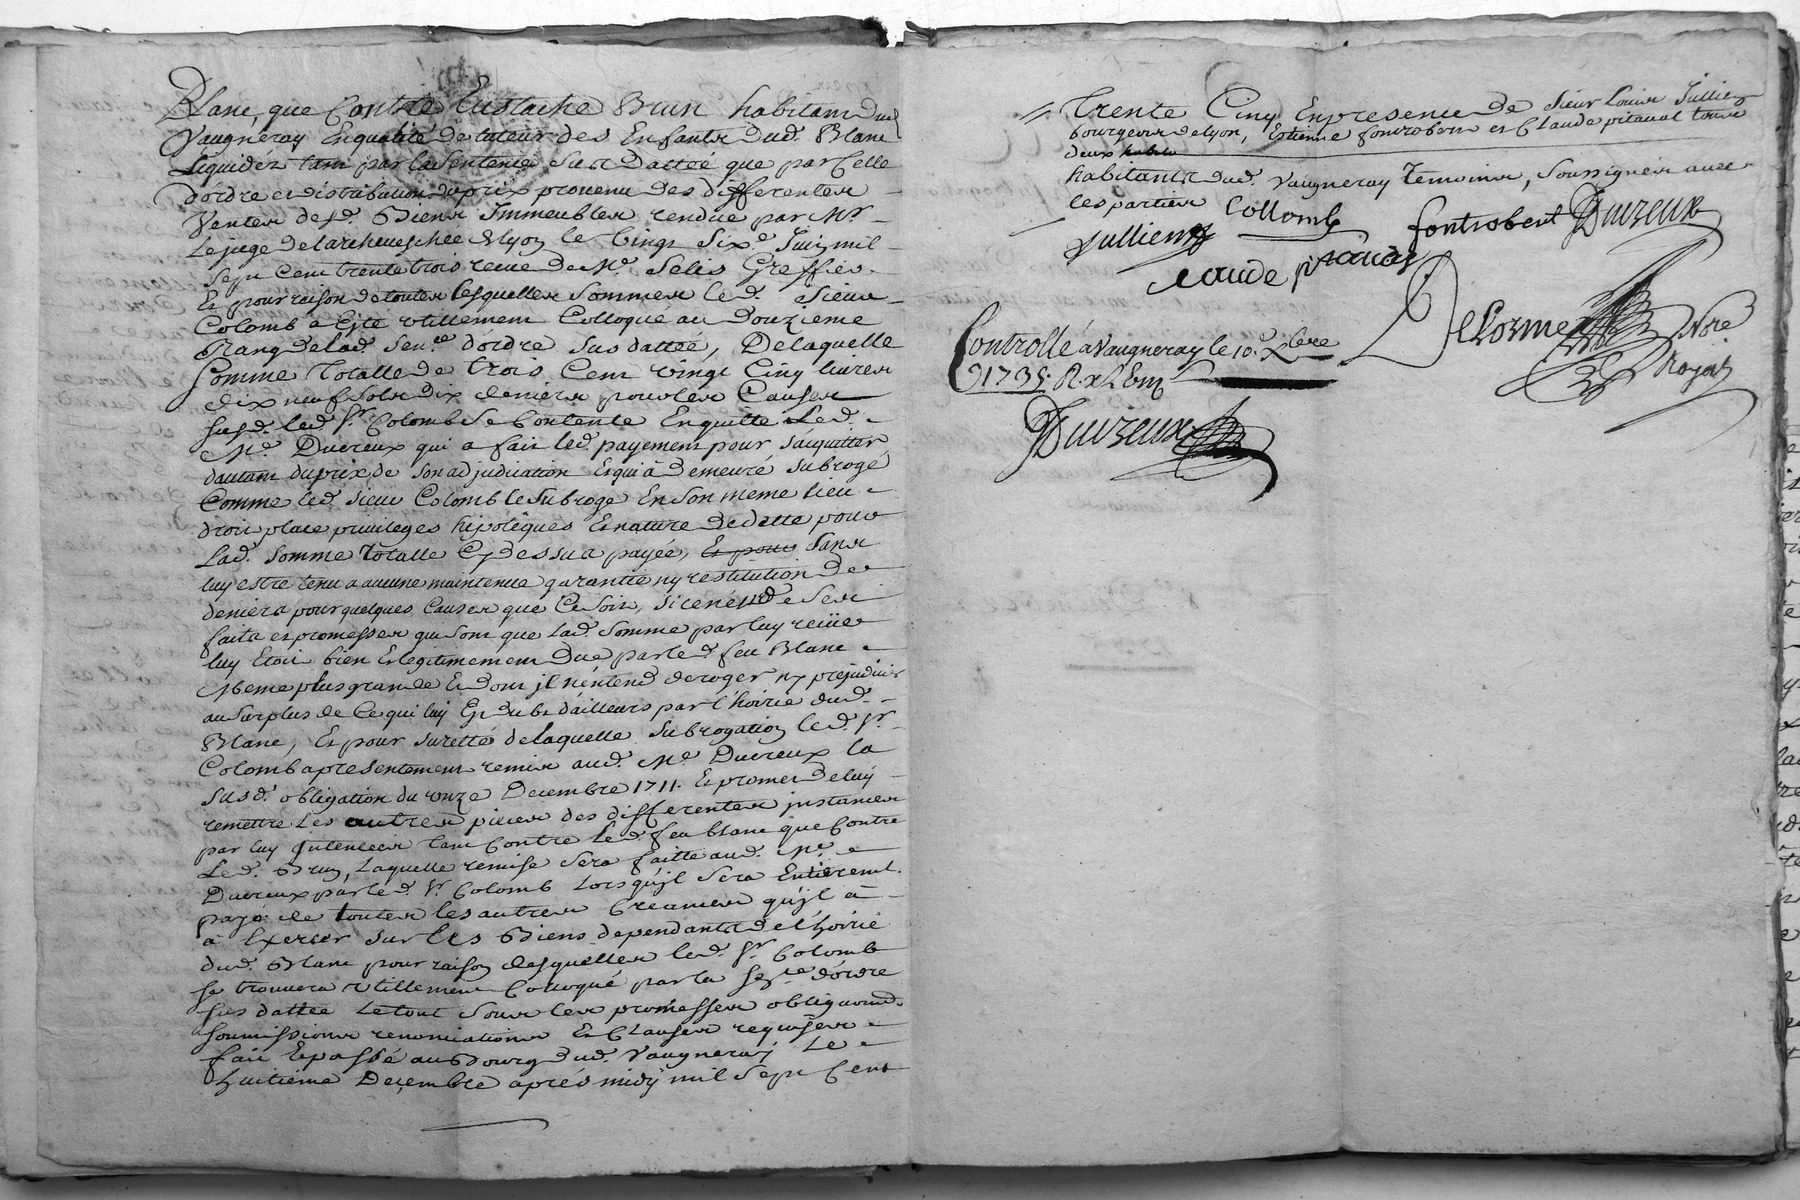 Blanc, que Contre Eustache Brun habitant dud
Vaugneray Enqualité de tuteur des Enfants dud. Blanc
Liquidez tant par la Sentence Sus dattée que par Celle
d'ordre et distribution du prix provenu des differentes
Ventes desd. Biens Immeubles rendue par Mr
Le juge de larcheveschée de lyon le Vingt Six.e Juin mil
Sept Cent trente trois receue de Me. Selis Greffier
Et pour raison de toutes lesquelles Sommes led. Sieur
Colomb a Esté utillement Colloqué au Douzieme
Rang de lad. Sen.ce d'ordre Sus dattée, De laquelle
Somme Totalle de trois Cent Vingt Cinq livres
dix neuf Sols dix deniers pour les Causes
susd. led. Sr. Colomb Se Contente En quitte Led.
Me. Ducreux qui a fait led. payement pour S'acquitter
dautant du prix de Son adjudication Et qui a demeuré Subrogé
Comme led. Sieur Colomb le Subroge En Son meme lieu
droit place privileges hipoteques Et nature de dette pour
Lad. Somme Totalle Cy dessus payée, Et pour Sans
luy estre tenu a aucune maintenue garantie ny restitution de
deniers pour quelques Causes que Ce Soit, Si ce n'est de Ses
faits et promesses qui Sont que Lad. Somme par luy receue
luy Etoit bien Et legitimement Due par led. feu Blanc
Meme plus grande Et dont jl n'entend deroger ny prejudicier
au Surplus de Ce qui luy Est dub d'ailleurs par l'hoirie dud.
Blanc, Et pour Suretté de laquelle Subrogation led. Sr.
Colomb a presentement remis aud. Me. Ducreux la
Susd. obligation du onze Decembre 1711. Et promet de luy
remettre Les autres pieces des differentes jnstances
par luy Jntentées tant Contre Led. feu blanc que Contre
Led. Brun, Laquelle remise Sera faitte aud. Me.
Ducreux par led. Sr. Colomb Lorsqu'jl Sera Entierem.t
payé de toutes les autres Creances qu'jl a
a Exercer sur les Biens dependants de l'hoirie
dud. Blanc pour raison desquelles led. Sr. Colomb
se trouvera utillement Colloqué par la Sen.ce d'ordre
sus dattée Le tout Sous les promesses obligaons.
Soumissions renonciations Et Clauses requises
fait Et passé au Bourg dud. Vaugneray Le
huitieme Decembre aprés midy mil Sept Cent
Trente Cinq En presence de Sieur Louis Jullien
bourgeois de lyon, Estienne fontrobert et Claude pitaval tous
deux habita
habitants dud. Vaugneray Temoins, Soussignés avec
les parties Collomb fontrobert Ducreux
Jullien
Claude pitaval
Delorme Nore
Royal
Controllé a Vaugneray le 10.e Xbre
1735. R.
Ducreux